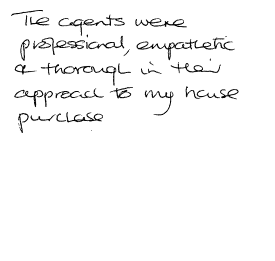 The agents were
professional, empathetic
& thorough in their
approach to my house
purchase